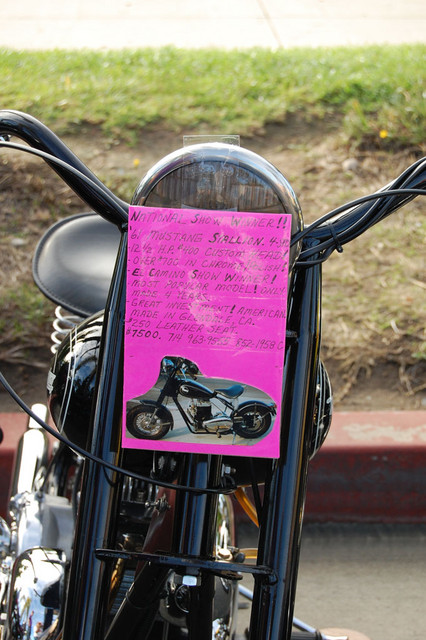 NATIONAL SHOW WINNER!!
MUSTANG STALLION. 4-SP
12½ H.P. $400 CUSTOM
OVER $700 IN CHROME
EL CAMINO SHOW WINNER!
MOST POPULAR MODEL! ONLY
MADE 4 YEARS.
GREAT INVESTMENT! AMERICAN
MADE IN CA.
$250 LEATHER SEAT.
$7500. 714 963-